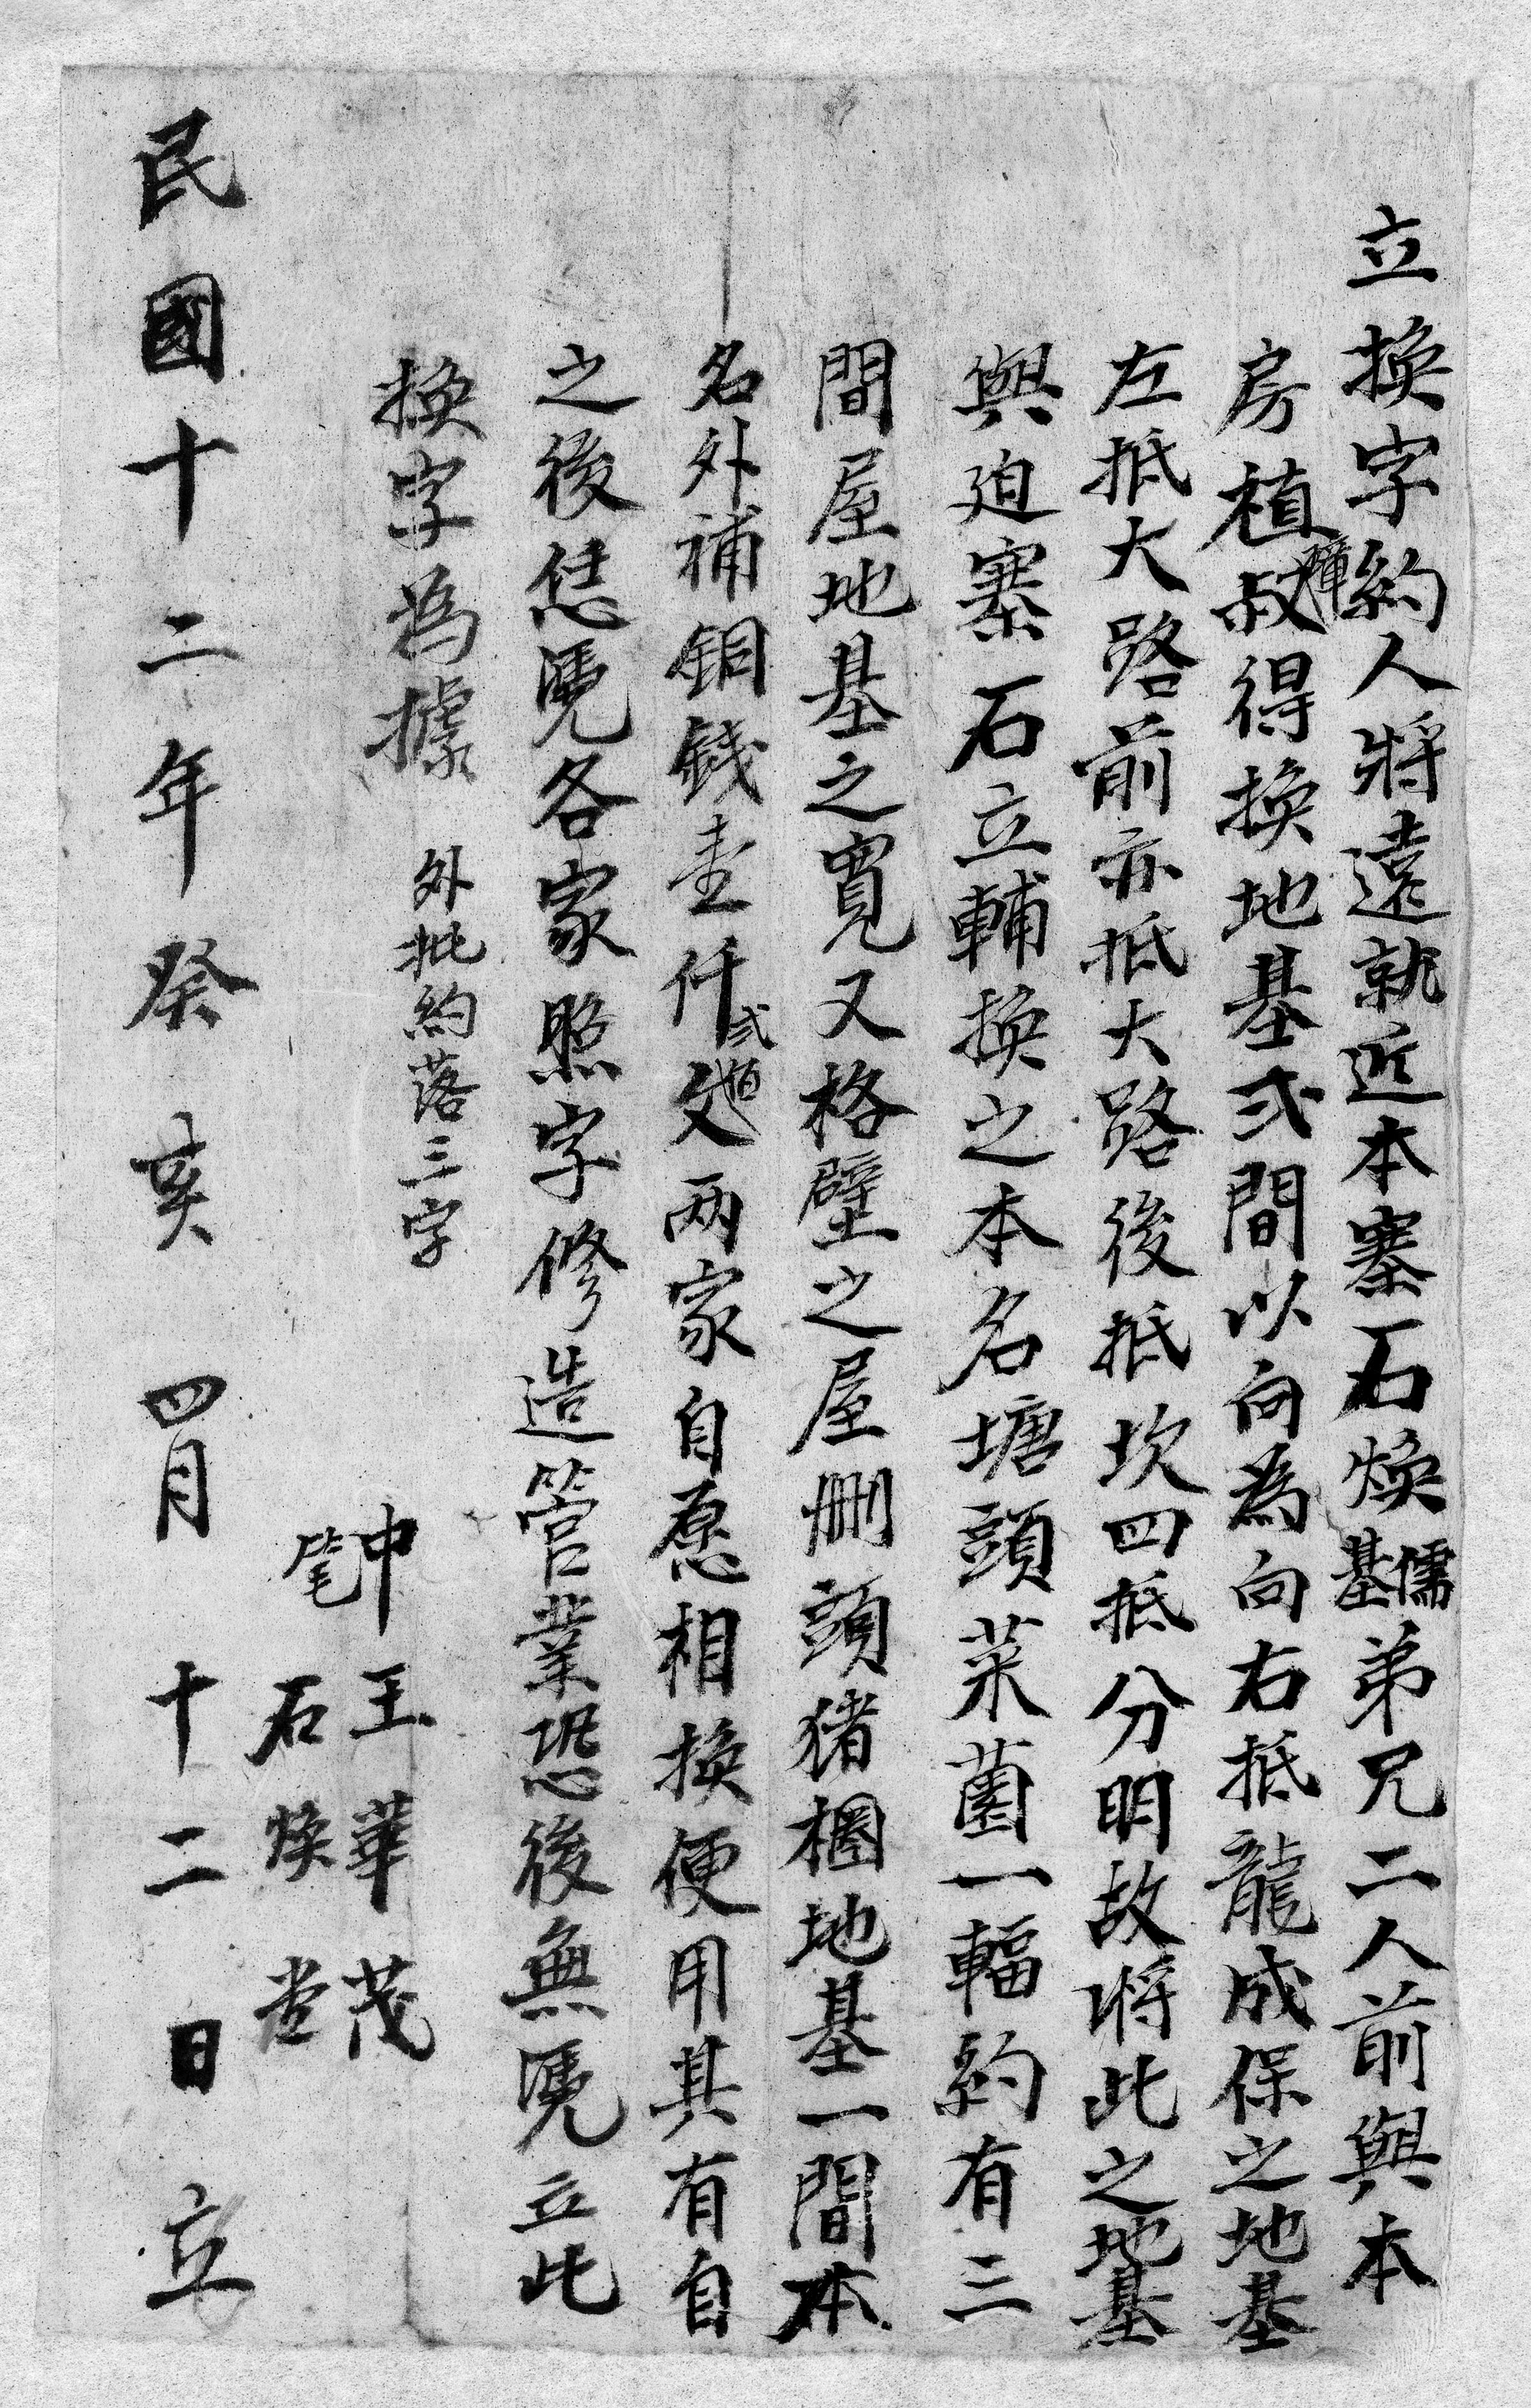 立換字約人將遠就近本寨石煥儒基弟兄二人前與本
房植璋叔得換地基弍間以向為向右抵龍成保之地基
左抵大路前亦抵大路後抵坎四抵分明故將此之地基
與迫寨石立輔換之本名塘頭菜薗一輻約有三
間屋地基之寬又格壁之屋刪頭猪棬地基一間本
名外補銅錢壹仟弍百文两家自愿相換便用其有自
之後恁凴各家照字修造管業恐後無凴立此
換字為據 外批約落三字
中 王華茂
笔 石煥堂
民國十二年癸亥四月十二日立